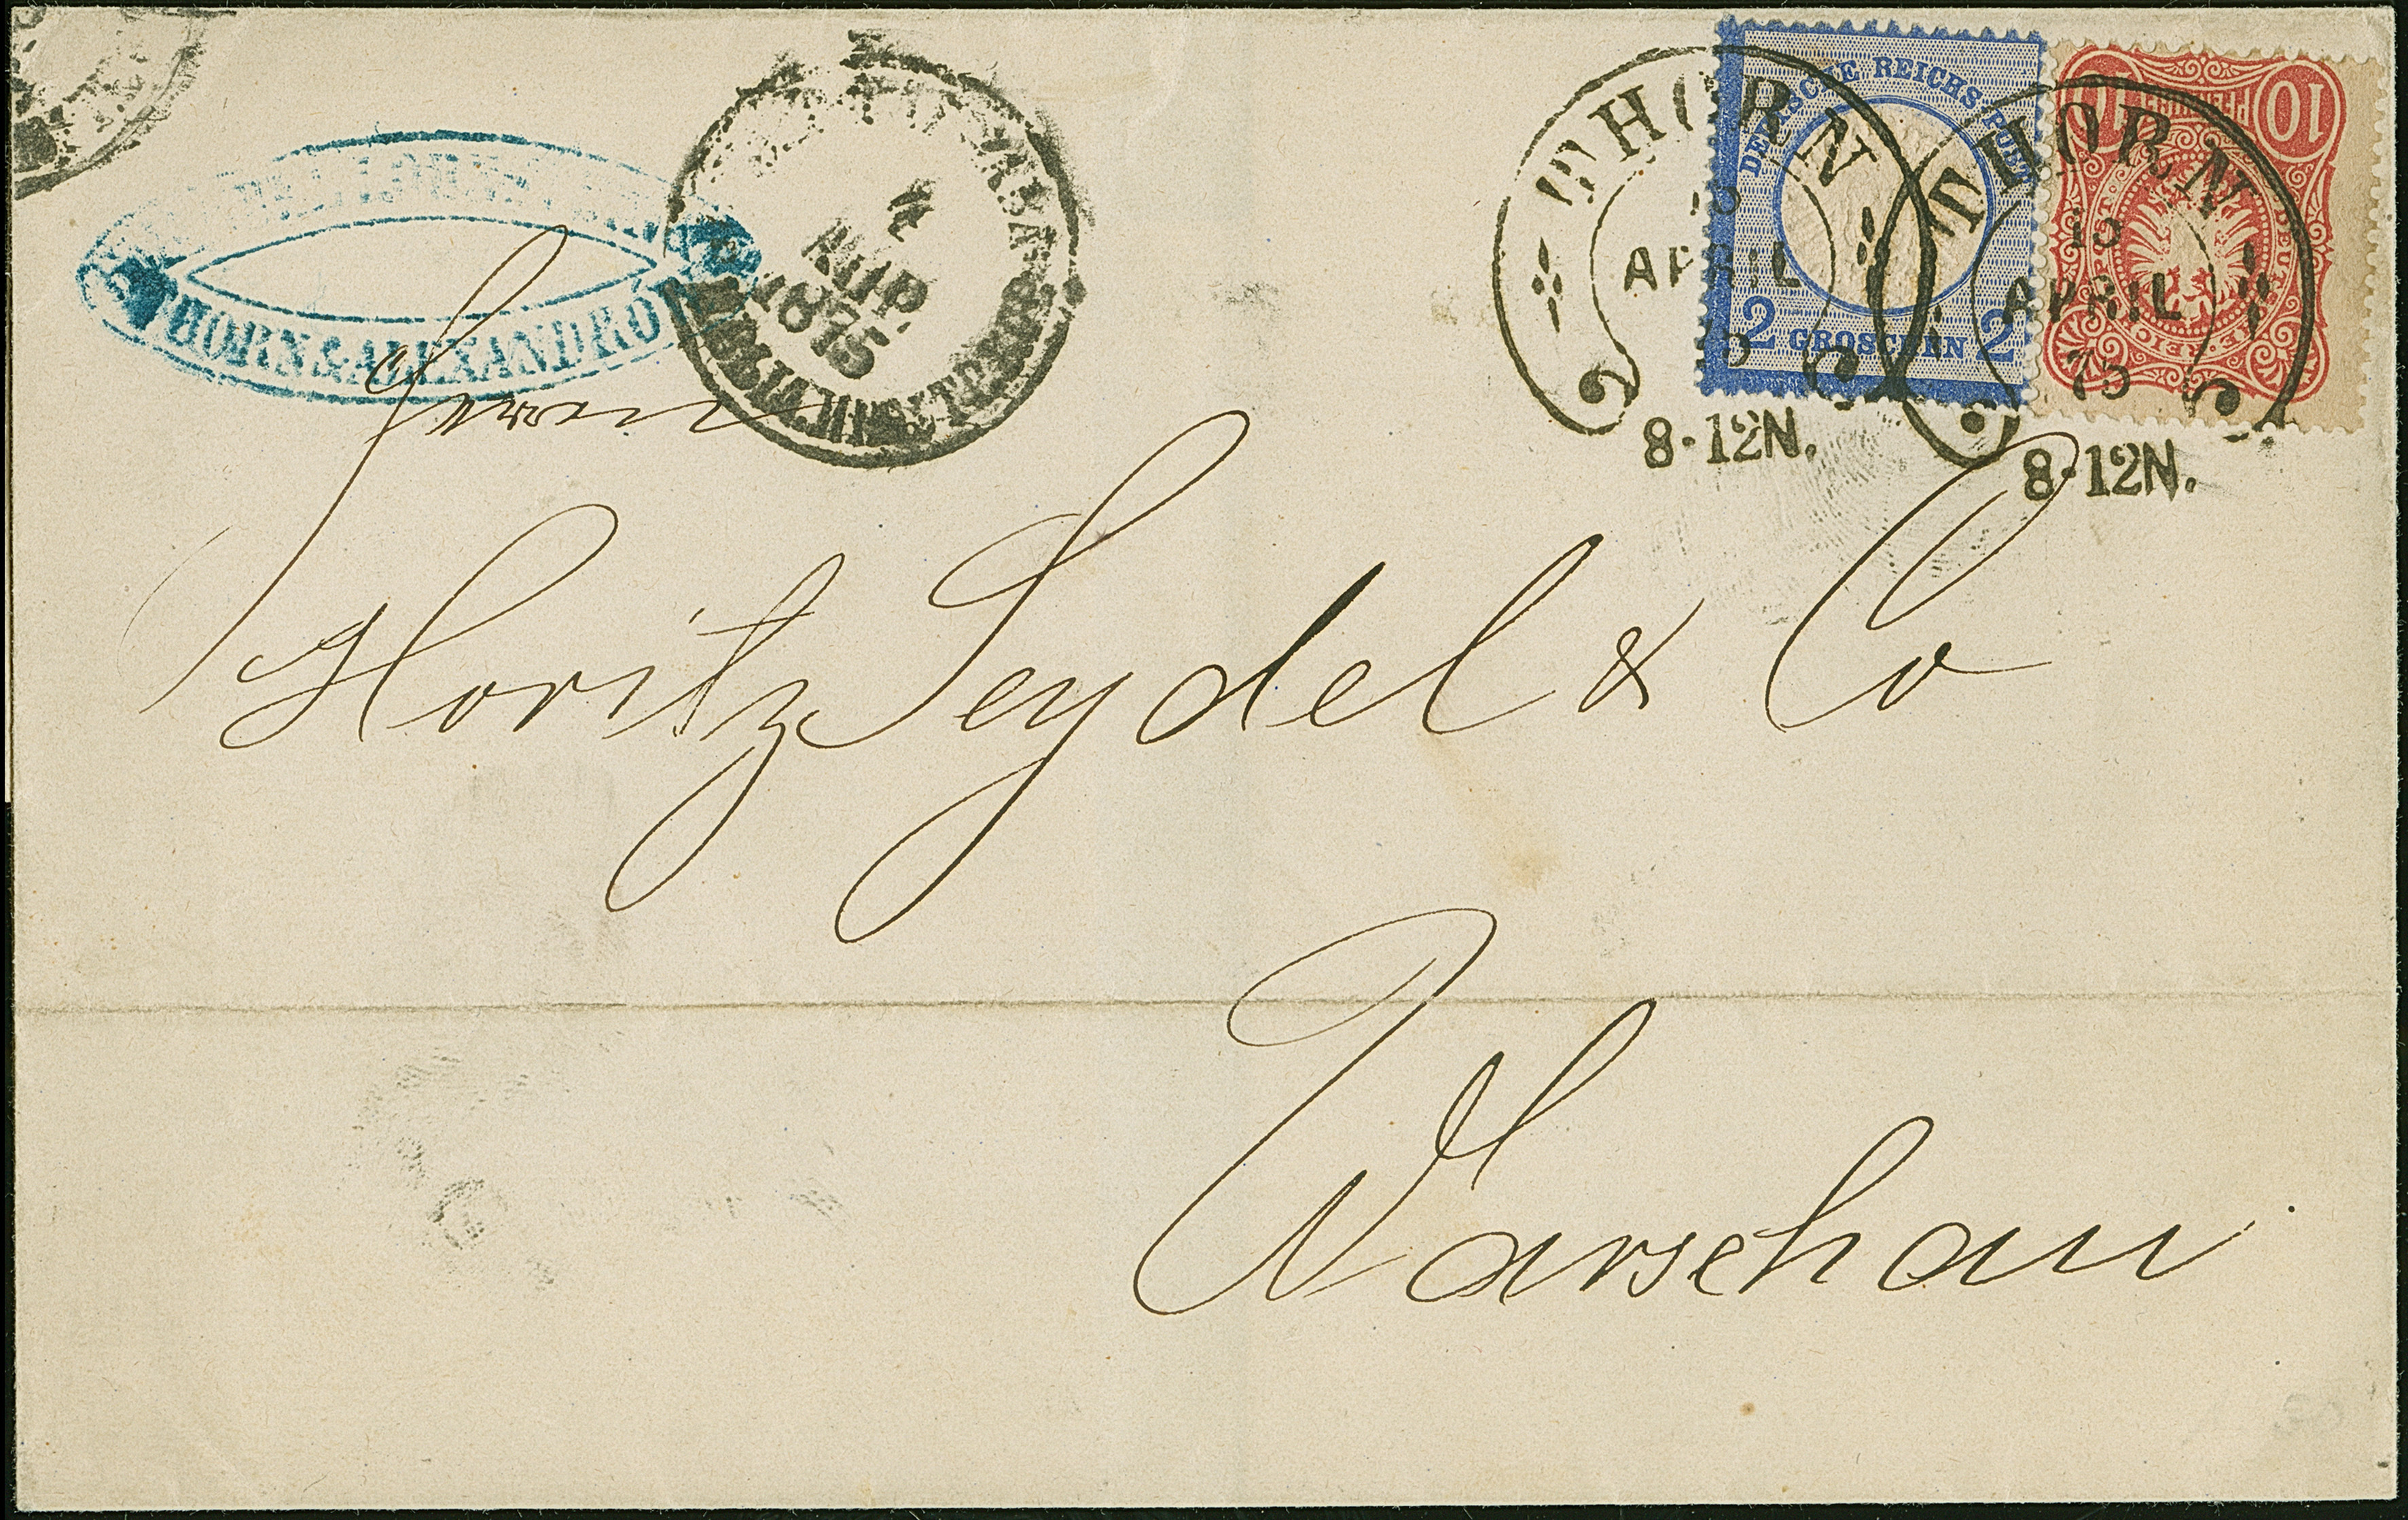 THORN & ALEXANDRÓ
АПР.
1875
THORN
APRIL
8-12N.
DEUTSCHE REICHS-POST
2 GROSCHEN 2
THORN
APRIL
75
8-12N.
10 PFENNIGE 10
Herrn
Moritz Seydel & Co
Warschau.